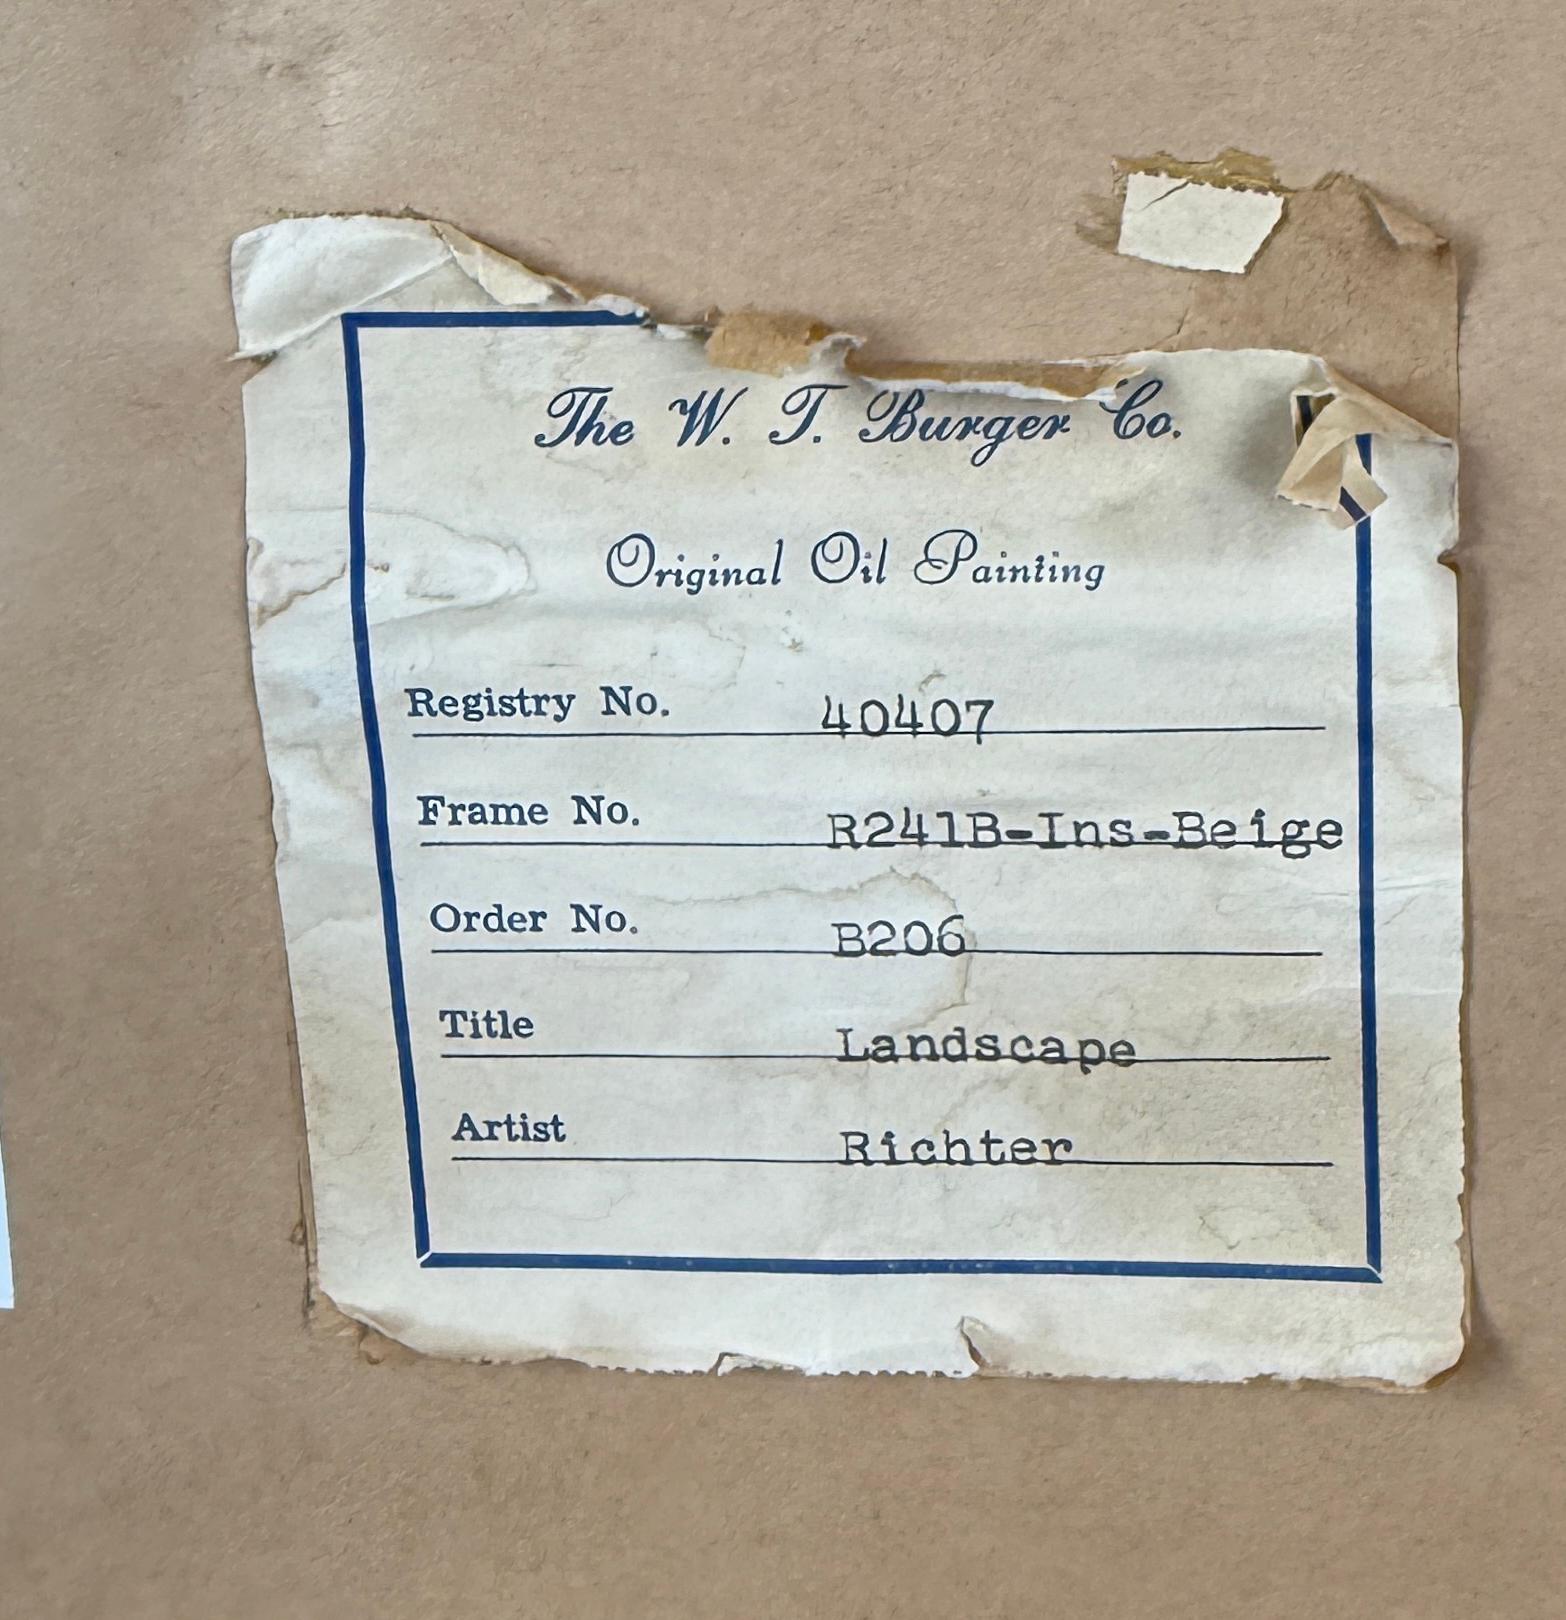 The W. T. Burger Co.
Original Oil Painting
Registry No. 40407
Frame No. R241B-Ins-Beige
Order No. B206
Title Landscape
Artist Richter